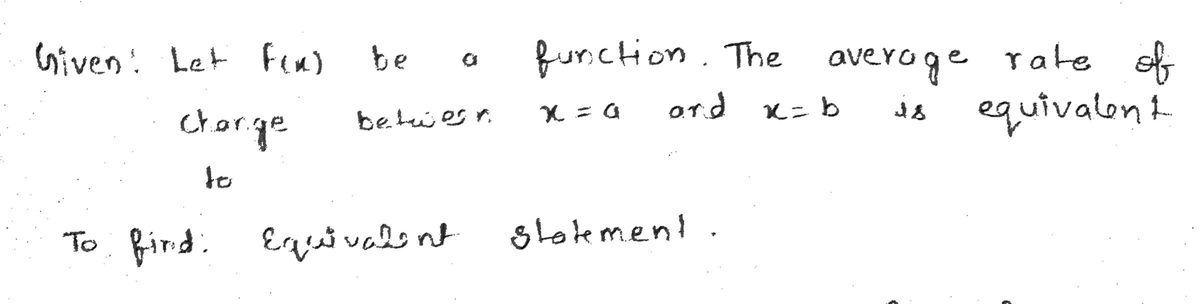 Given: Let f(x) be a function. The average rate of
change between x = a and x = b is equivalent
to
To find: Equivalent statement.